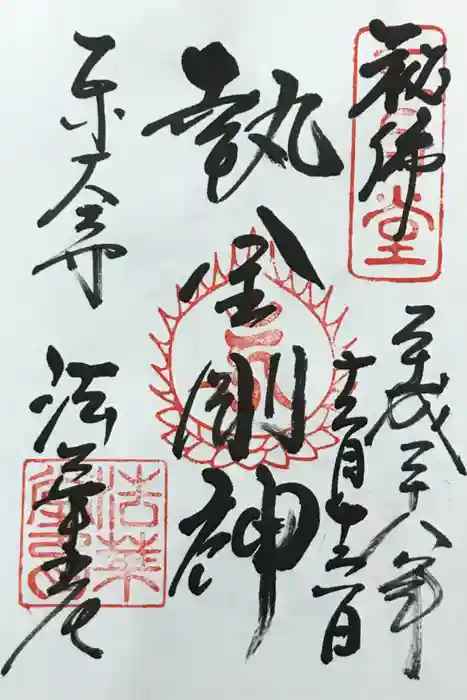 秘佛
三月堂
平成二十八年
十二月十六日
執金剛神
東大寺
法華堂
法華堂印